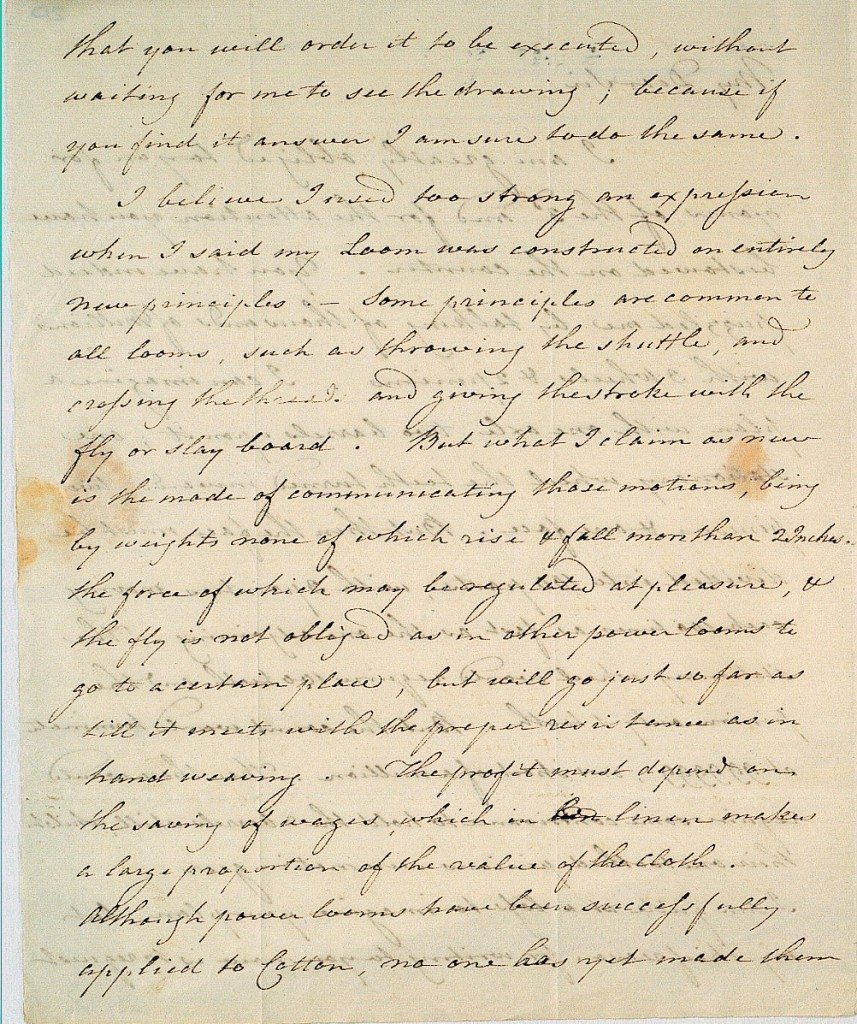 that you will order it to be executed, without
waiting for me to see the drawing; because if
you find it answer I am sure to do the same.
I believe I used too strong an expression
when I said my Loom was constructed on entirely
new principles. — Some principles are common to
all looms, such as throwing the shuttle, and
crossing the thread. and giving the stroke with the
fly or slay board. But what I claim as new
is the mode of communicating those motions, being
by weights none of which rise & fall more than 2 Inches.
the force of which may be regulated at pleasure, &
the fly is not obliged as in other power looms to
go to a certain place, but will go just so far as
till it meets with the proper resistance as in
hand weaving. The profit must depend on
the saving of wages, which in linen makes
a large proportion of the value of the cloth.
Although power looms have been successfully
applied to Cotton, no one has yet made them